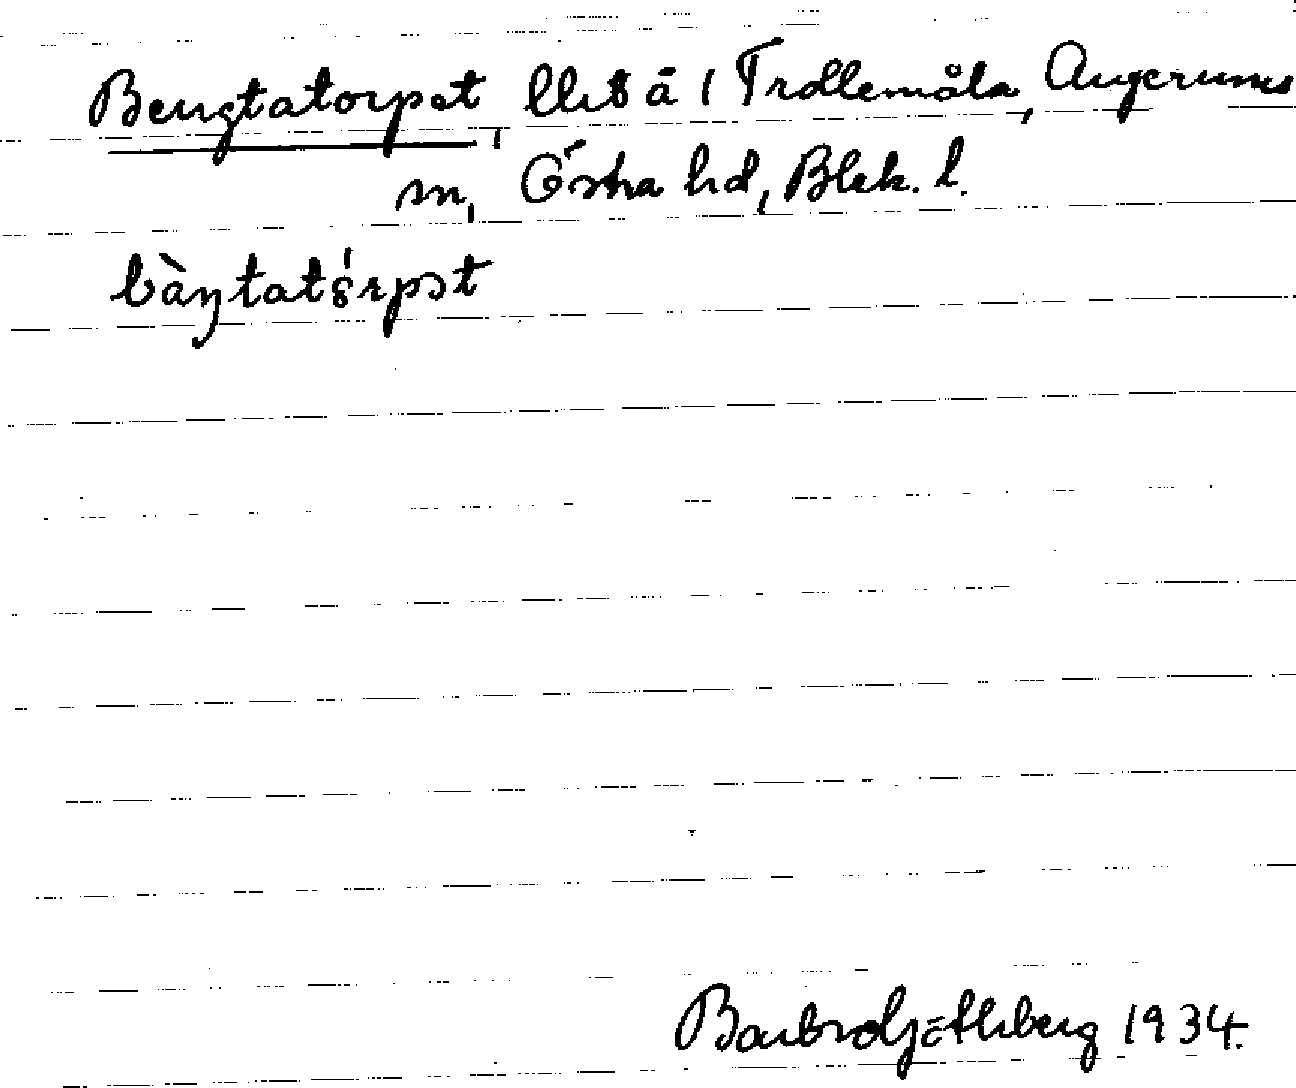 Bengtatorpet, lht å 1 Trollemåla, Augerums
sn, Östra hd, Blek. l.
bàŋtatórpət
Barbro Götlberg 1934.